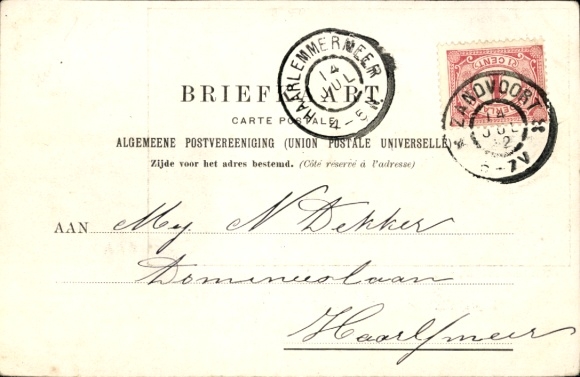 BRIEFKAART
CARTE POSTALE
ALGEMEENE POSTVEREENIGING (UNION POSTALE UNIVERSELLE)
Zijde voor het adres bestemd. (Côté réservé à l'adresse)
HAARLEMMERMEER
14 JUL
4-5N
1 CENT
ZANDVOORT
14 JUL 02
6-7V
AAN Mej. N Dekker
Domineeslaan
Haarl/meer